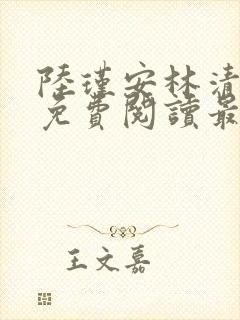 陸瑾安林清
免費閱讀最
王文嘉